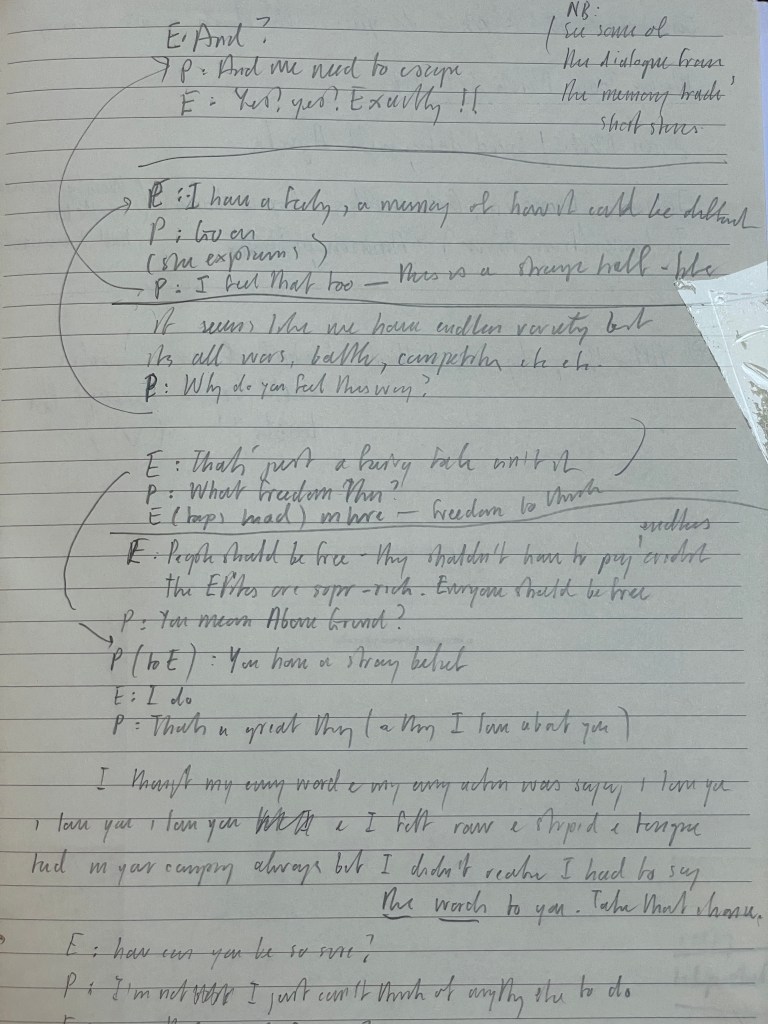 NB:
See some of
the dialogue from
the 'memory trade'
short stories.
E: And?
P: And we need to escape
E: Yes? yes? Exactly!!
E: I have a feeling, a memory of how it could be different
P: Go on
(she explains)
P: I feel that too — this is a strange half-life
it seems like we have endless variety but
its all wars, battle, competition etc etc.
P: Why do you feel this way?
E: That's just a fairy tale isn't it
P: What freedom then?
E (taps head) in here — freedom to think
E: People should be free - they shouldn't have to pay endless credit
the Elites are super-rich. Everyone should be free
P: You mean Above Ground?
P (to E): You have a strong belief
E: I do
P: That's a great thing (a thing I love about you)
I thought my every word & my every action was saying i love you
i love you i love you & I felt raw & stupid & tongue
tied in your company always but I didn't realise I had to say
the words to you. Take that chance.
E: how can you be so sure?
P: I'm not I just can't think of anything else to do